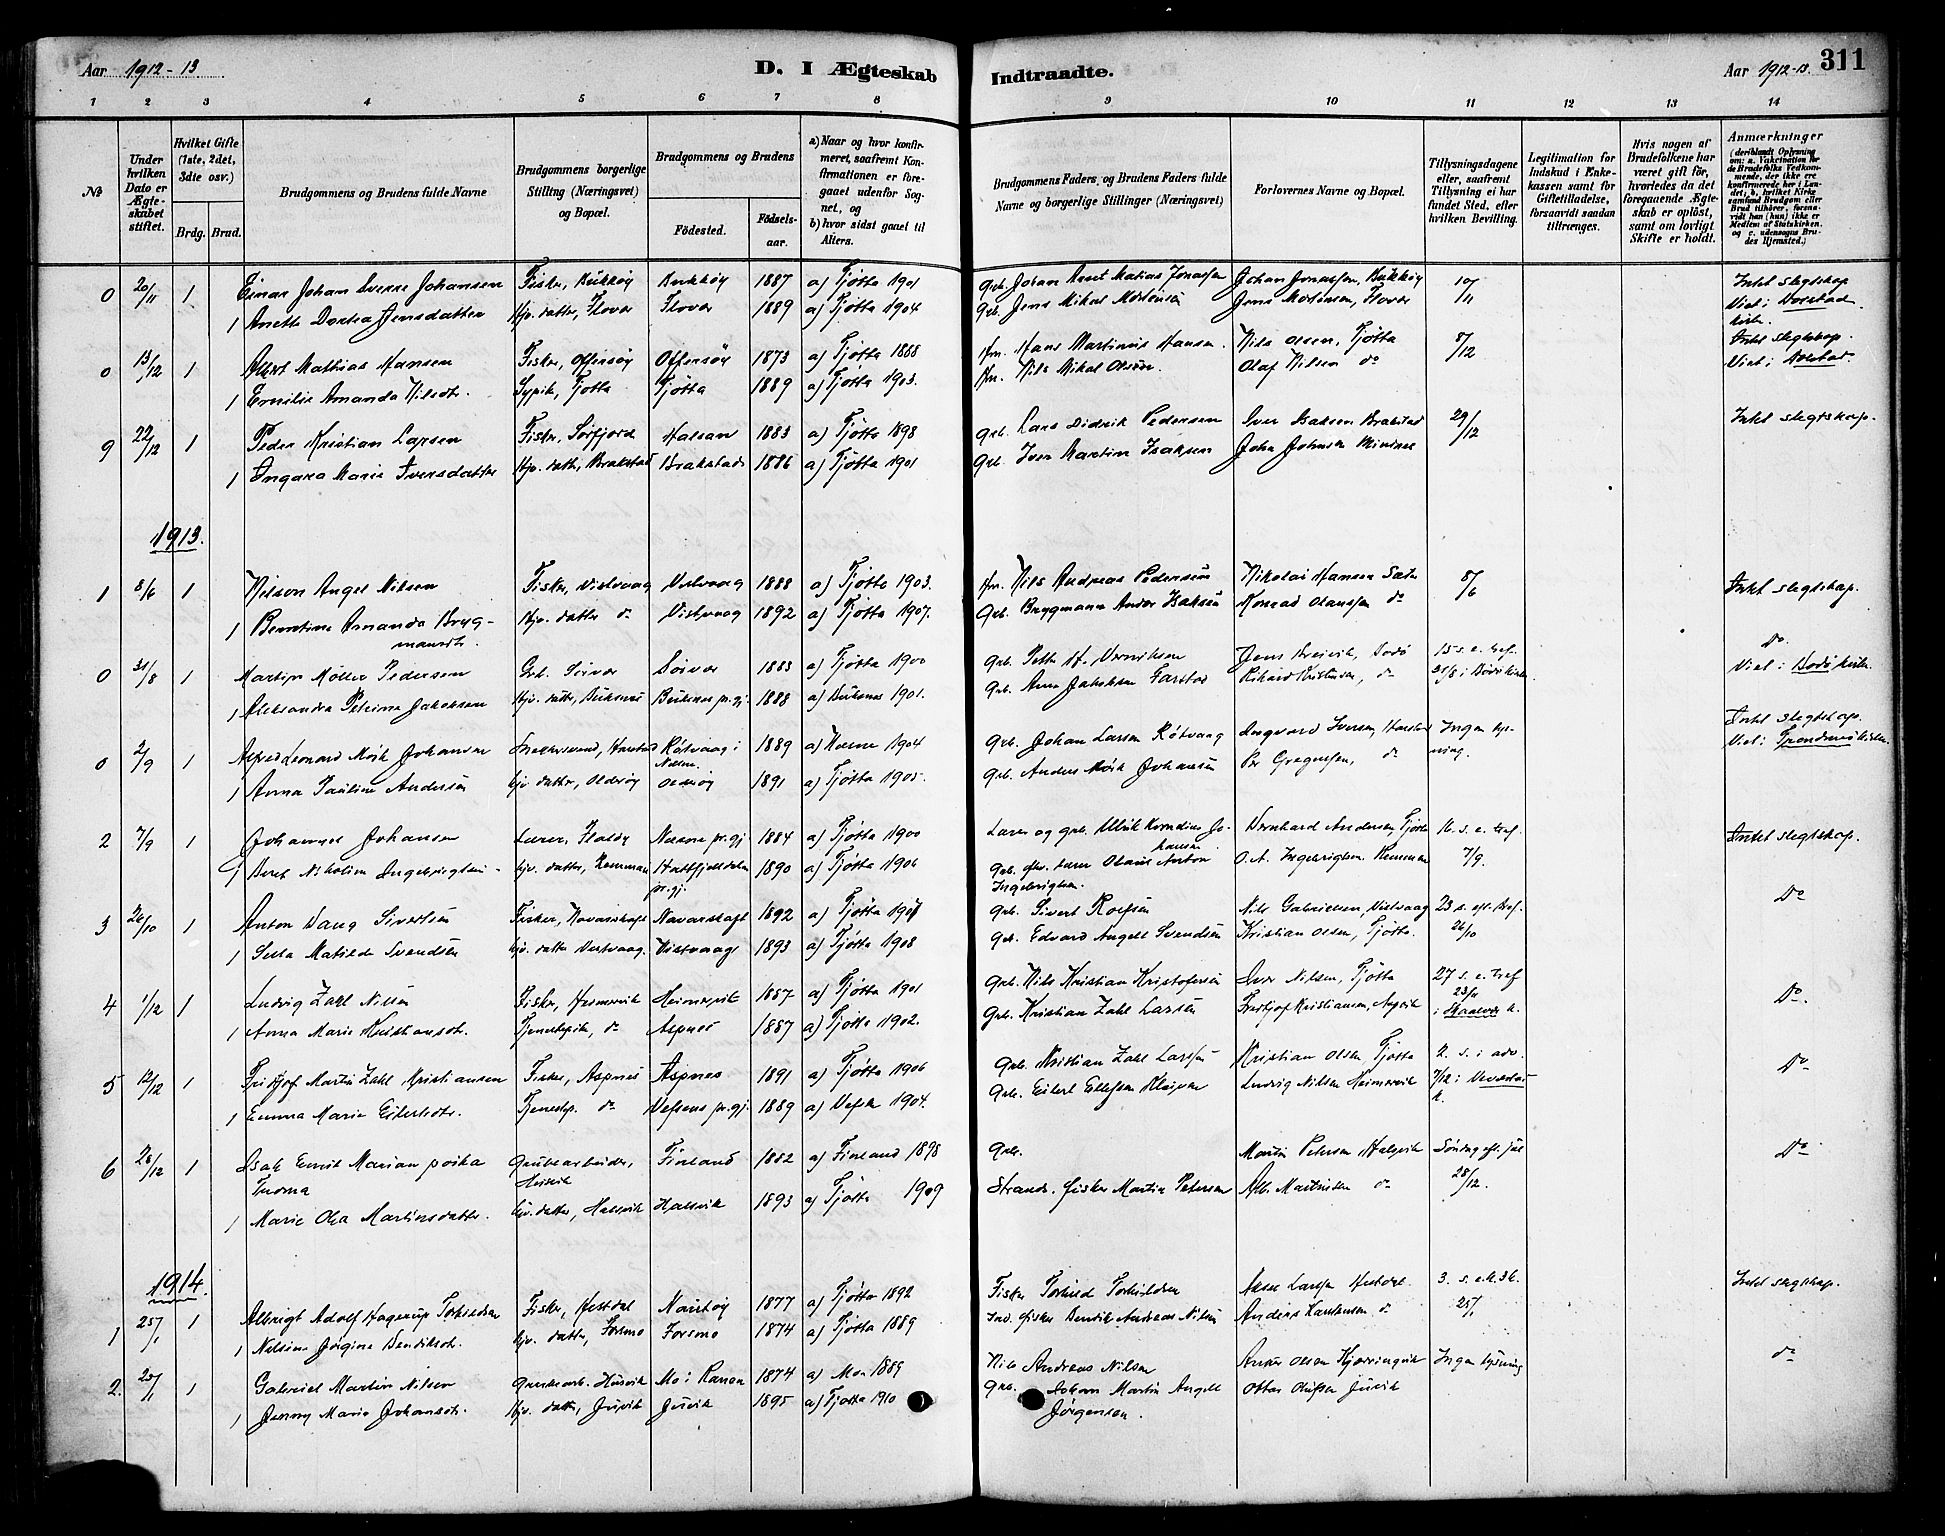 Aar 1912-13.
D. I Ægteskab
Indtraadte.
Aar 1912-13.
311
1 2 3 4 5 6 7 8 9 10 11 12 13 14
№
Under hvilken Dato er Ægteskabet stiftet.
Hvilket Gifte (1ste, 2det, 3dte osv.)
Brdg. Brud.
Brudgommens og Brudens fulde Navne
Brudgommens borgerlige Stilling (Næringsvei) og Bopæl.
Brudgommens og Brudens
Födested.
Födselsaar.
a) Naar og hvor konfirmeret, saafremt Konfirmationen er foregaaet udenfor Sognet, og
b) hvor sidst gaaet til Alters.
Brudgommens Faders, og Brudens Faders fulde Navne og borgerlige Stillinger (Næringsvei)
Forlovernes Navne og Bopæl.
Tillysningsdagene eller, saafremt Tillysning ei har fundet Sted, efter hvilken Bevilling.
Legitimation for Indskud i Enkekassen samt for Giftetilladelse, forsaavidt saadan tiltrænges.
Hvis nogen af Brudefolkene har været gift för, hvorledes da det foregaaende Ægteskab er oplöst, samt om lovligt Skifte er holdt.
Anmærkninger
(deriblandt Oplysning om: a. Vakcination for de Brudefolks Vedkommende, der ikke ere konfirmerede her i Landet; b. hvilket Kirkesamfund Brudgom eller Brud tilhörer, forsaavidt han (hun) ikke er Medlem af Statskirken. og c. udensogns Brudes Hjemsted.)
0 20/11 1 Einar Johan Sverre Johansen Fisker, Bukköy Bukköy 1887 a) Tjötta 1901 Grb. Johan Arnt Matias Jonassen Johan Jonassen, Bukköy 10/11 Intet slegtskap
1 Anette Dortea Jensdatter Hjv. datter, Flovær Flovær 1889 a) Tjötta 1904 Grb. Jens Mikal Mortensen Jens Mortensen, Flovær Viet i Dolstad kirke.
0 13/12 1 Albert Mathias Hansen Fisker, Offersöy Offersöy 1873 a) Tjötta 1888 Hm. Hans Martinus Hansen. Nils Olsen, Tjötta 8/12 Intet slegtskap.
1 Emilie Amanda Nilsdtr. Sypike, Tjötta Tjötta 1889 a) Tjötta 1903. Hm. Nils Mikal Olsen. Olaf Nilsen do Viet i Dolstad.
9 22/12 1 Peder Kristian Larsen Fisker, Sörfjord Halsan 1883 a) Tjötta 1898 Grb. Lars Didrik Pedersen Iver Isaksen Brakstad 29/12 Intet slegtskap.
1 Ingara Marie Iversdatter Hjv. datter, Brakstad Brakstad 1886 a) Tjötta 1901 Grb. Iver Martin Isaksen Johan Johnsen Mindnes
1913.
1 8/6 1 Nilson Angel Nilsen Fisker, Vistvaag Vistvaag 1888 a) Tjötta 1903. Hm. Nils Andreas Pedersen Nikolai Hansen Sæter 8/6 Intet slegtskap.
1 Berntine Amanda Brygmansdtr. Hjv. datter do Vistvaag 1892 a) Tjötta 1907. Grb. Brygmann Andor Isaksen Konrad Olaussen do
0 31/8 1 Martin Möller Pedersen Grb. Seivær Söivær 1883 a) Tjötta 1900 Grb. Petter H. Henriksen Jens Breivik, Bodö 15 s. e. tref. Do
1 Aleksandra Petrine Jakobsen Hjv. datter, Buksnes Buksnes pr.gj. 1888 a) Buksnes 1901. Grb. Jakobsen Farstad Rikard Kristensen, do 31/8 i Bodö kirke Viet i Bodö kirke.
0 2/9 1 Alfred Leonard Mörk Johansen Harstad Rötvaag i Nesne. 1889 a) Nesne 1904 Grb. Johan Larsen Rötvaag Ingvard Iversen Harstad Ingen lysning. Intet slegtskap.
1 Anna Pauline Andersen hjv. datter, Olderöy Olderöy 1891 a) Tjötta 1905. Grb. Anders Mörk Johansen Per Gregussen, do Viet i Trondenes kirke.
2 7/9 1 Johannes Johansen Lærer, Flatöy Nesna pr.gj 1884 a) Tjötta 1900 Lærer og grb. Ulrik Kornelius Johansen Bernhard Andersen, Tjötta 16. s. e. tref. Intet slegtskap.
1 Beret Nikoline Ingebrigtsen hjv. datter, Remman Hattfjelddalen pr.gj. 1890 a) Tjötta 1906 Grb. fhv. lærer Olaus Anton Ingebrigtsen. O. A. Ingebrigtsen Remman 7/9.
3 26/10 1 Anton Dang Sivertsen Fisker, Kovarskaft Navarskaft 1892 a) Tjötta 1907 Grb. Sivert Rolfsen Nils Gabrielsen, Vistvaag 23 s. eft. tref. Do
1 Sella Matilde Svendsen hjv. datter Vistvaag. Vistvaag 1893 a) Tjötta 1908 Grb. Edvard Angell Svendsen Kristian Olsen, Tjötta. 26/10
4 1/12 1 Ludvig Zahl Nilsen Fisker, Heimervik Heimervik 1887 a) Tjötta 1901 Grb. Nils Kristian Kristofersen Iver Nilsen, Tjötta 27 s. e. tref Do.
1 Anna Marie Kristiansdtr. Tjenestepike, do Aspnes 1887 a) Tjötta 1902. Grb. Kristian Zahl Larsen Fridtjof Kristiansen, Aspvik 23/11 i Skaalvær k.
5 12/12 1 Fridtjof Martin Zahl Kristiansen Fisker, Aspnes Aspnes 1891 a) Tjötta 1906 Grb. Kristian Zahl Larssen Kristian Olsen Tjötta 2. s. i adv. Do
1 Emma Marie Eilertsdtr. Tjenestep. do Vefsens pr.gj. 1889 a) Vefsn 1904. Grb. Eilert Ellefsen Ludvig Nilsen Heimervik 7/12 i k.
6 28/12 1 Isak Emil Marian poika Tuoma Grubearbeider, Finland 1882 a) Finland 1898 Grb. Martin Petersen Halsvik Söndag eft. jul Do
1 Marie Olea Martinsdatter. hjv. datter, Halsvik Halsvik 1893 a) Tjötta 1909 Strands. fisker Martin Petersen Alb. Martinsen do 28/12.
1914.
1 25/1 1 Albrigt Adolf Hagerup Torkildsen Fisker, Hestdal Navtöy 1877 a) Tjötta 1892 Fisker Torkild Torkildsen Larssen Hestdal. 3. s. e. h. 3 k. Intet slegtskap.
1 Nilsine Jörgine Bendiksdtr. hjv. datter, Forsmo Forsmo 1874 a) Tjötta 1889 Ind. fisker Bendik Andreas Nilsen Anders Karstensen do 25/1
2. 25/1 1 Gabriel Martin Nilsen Grubearb. Husvik Mo i Ranen 1874 a) Mo 1889 Nils Andreas Nilsen Anker Olsen Kjerringvik Ingen lysning do
1 Jenny Marie Johansdtr. Hjv. datter, Juvik Juvik 1895 a) Tjötta 1910 Grb. Johan Martin Angell Jörgensen. Ottar Olufsen Juvik